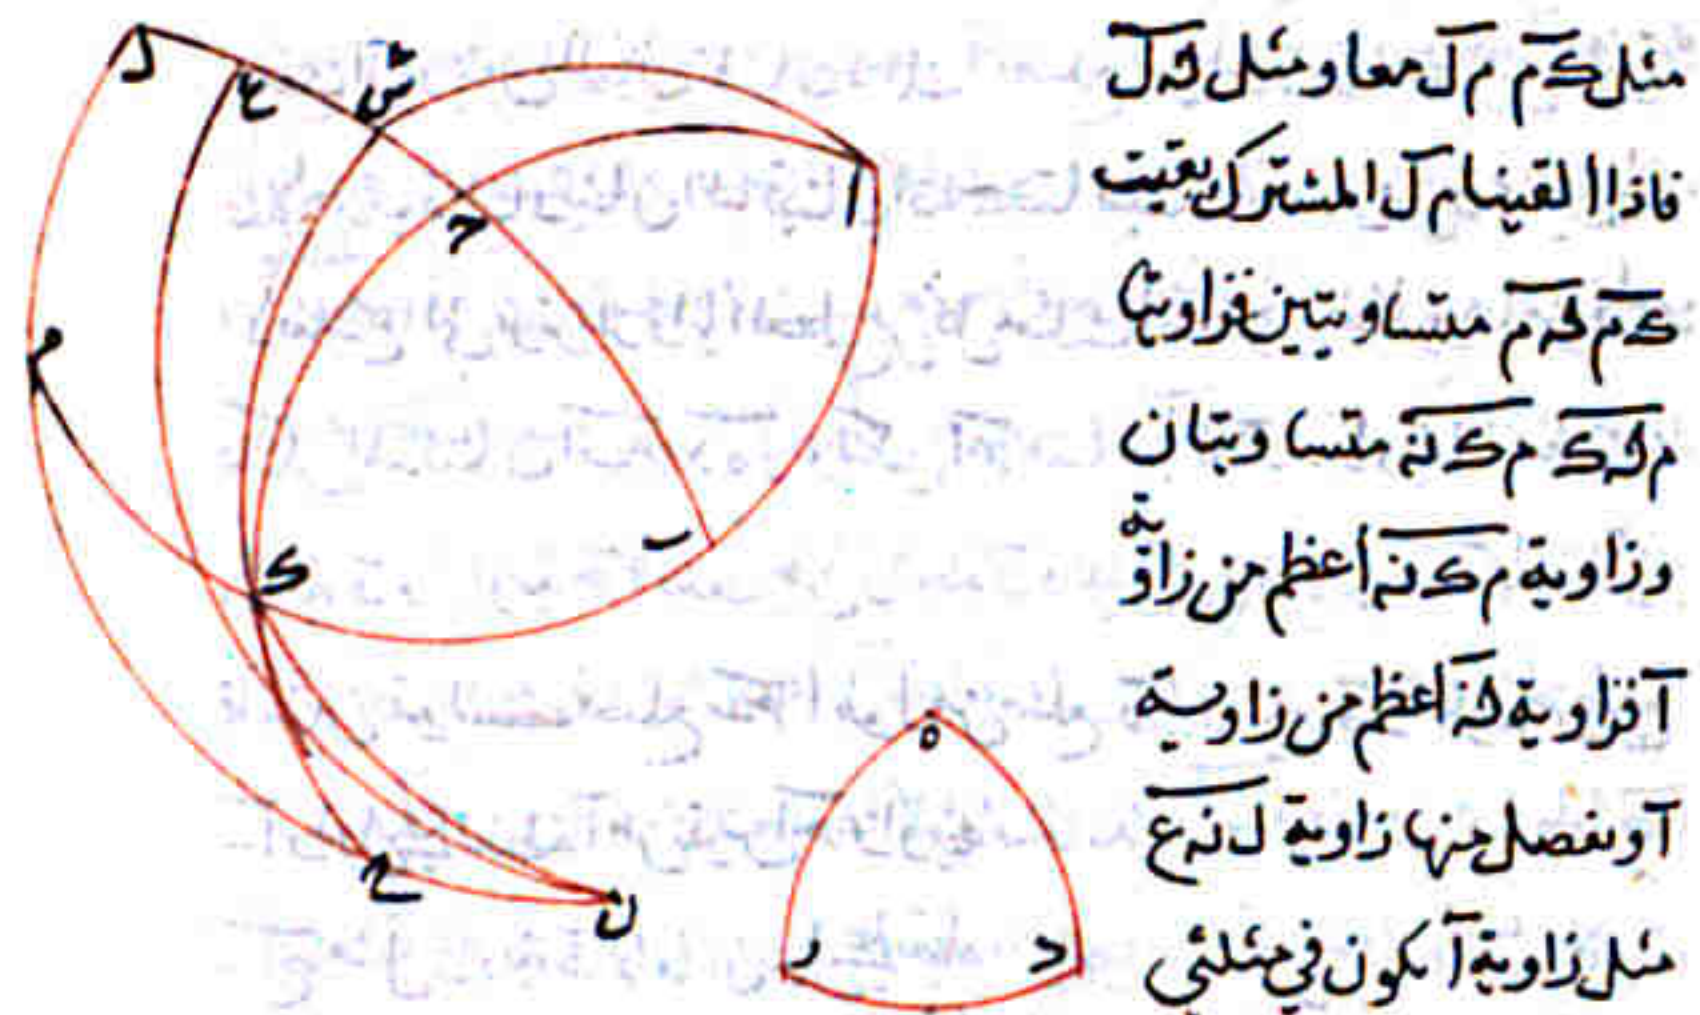 مثل كم م ل معا ومثل نه ل
فاذا القينا م ل المشترك بقيت
كم نه م متساويتين فزاويتا
م نه ك م ك نه متساويتان
وزاوية م ك نه أعظم من زاوية
آ فزاوية نه أعظم من زاوية
آ ونفصل منها زاوية ل نه ع
مثل زاوية آ يكون في مثلثي
ل
ع
ش
ا
ح
م
ب
ك
ه
ح
ن
ر
د